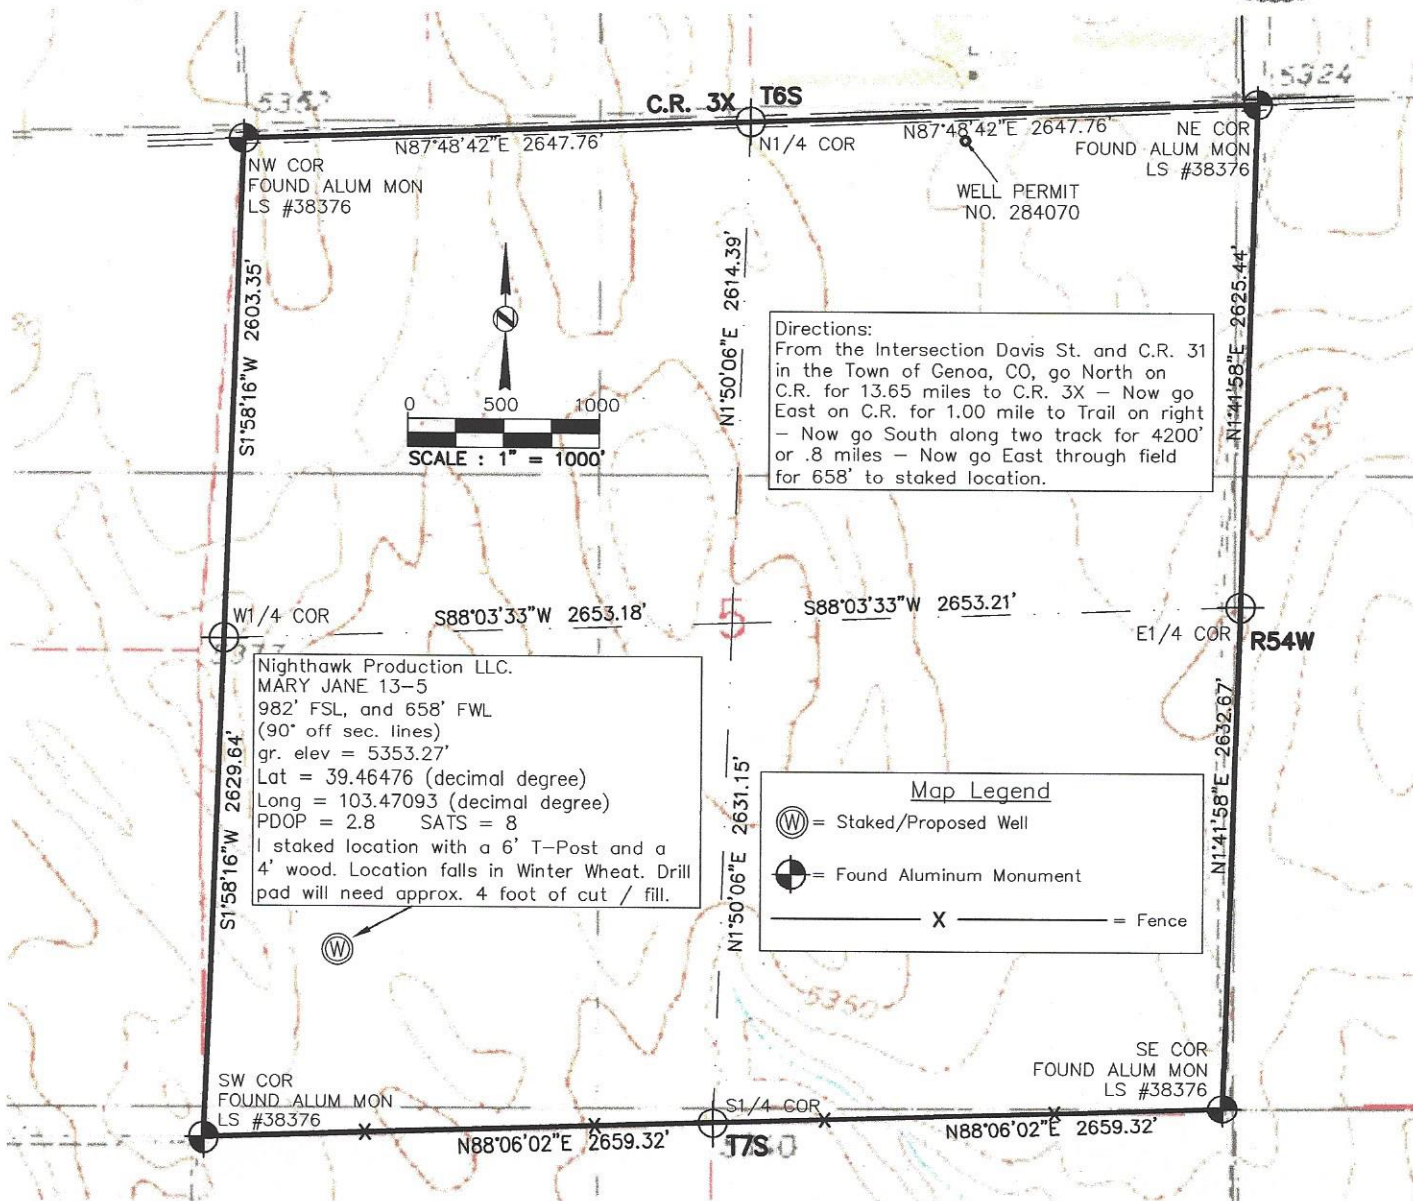 5324
5352
C.R. 3X
T6S
N87°48'42"E 2647.76'
N1/4 COR
N87°48'42"E 2647.76'
NE COR
FOUND ALUM MON
LS #38376
NW COR
FOUND ALUM MON
LS #38376
WELL PERMIT
NO. 284070
S1°58'16"W 2603.35'
N1°50'06"E 2614.39'
N1°41'58"E 2625.44'
0 500 1000
SCALE : 1" = 1000'
Directions:
From the Intersection Davis St. and C.R. 31
in the Town of Genoa, CO, go North on
C.R. for 13.65 miles to C.R. 3X – Now go
East on C.R. for 1.00 mile to Trail on right
– Now go South along two track for 4200'
or .8 miles – Now go East through field
for 658' to staked location.
5350
W1/4 COR
S88°03'33"W 2653.18'
5
S88°03'33"W 2653.21'
E1/4 COR
R54W
Nighthawk Production LLC.
MARY JANE 13–5
982' FSL, and 658' FWL
(90° off sec. lines)
gr. elev = 5353.27'
Lat = 39.46476 (decimal degree)
Long = 103.47093 (decimal degree)
PDOP = 2.8 SATS = 8
I staked location with a 6' T–Post and a
4' wood. Location falls in Winter Wheat. Drill
pad will need approx. 4 foot of cut / fill.
S1°58'16"W 2629.64'
N1°50'06"E 2631.15'
N1°41'58"E 2632.67'
Map Legend
W = Staked/Proposed Well
= Found Aluminum Monument
X = Fence
W
5350
SW COR
FOUND ALUM MON
LS #38376
SE COR
FOUND ALUM MON
LS #38376
S1/4 COR
N88°06'02"E 2659.32'
T7S
N88°06'02"E 2659.32'